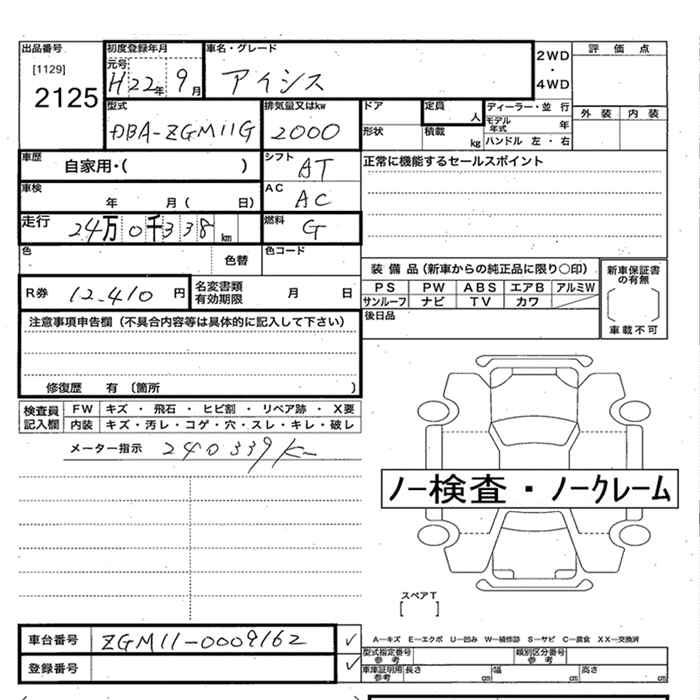 出品番号 初度登録年月 車名・グレード 2WD・4WD 評価点
[1129] 元号 H22年 9月 アイシス
2125 型式 排気量又はkw ドア 定員 人 ディーラー・並行 外装 内装
DBA-ZGM11G 2000 形状 積載 kg モデル年式 年
ハンドル 左・右
車歴 自家用・( ) シフト AT 正常に機能するセールスポイント
車検 年 月( 日) AC AC
走行 24万0千338km 燃料 G
色 色替 色コード
装備品(新車からの純正品に限り○印) 新車保証書の有無
R券 12,410円 名変書類有効期限 月 日 PS PW ABS エアB アルミW
サンルーフ ナビ TV カワ
車載不可
注意事項申告欄(不具合内容等は具体的に記入して下さい) 後日品
修復歴 有(箇所 )
検査員記入欄 FW キズ・飛石・ヒビ割・リペア跡・X要
内装 キズ・汚レ・コゲ・穴・スレ・キレ・破レ
メーター指示 240339km
ノー検査・ノークレーム
スペアT
[ ]
車台番号 ZGM11-0009162 ✓ A―キズ E―エクボ U―凹み W―補修跡 S―サビ C―腐食 XX―交換済
型式指定番号 参考 類別区分番号 参考
登録番号 ✓ 車庫証明用 参考 長さ cm 幅 cm 高さ cm